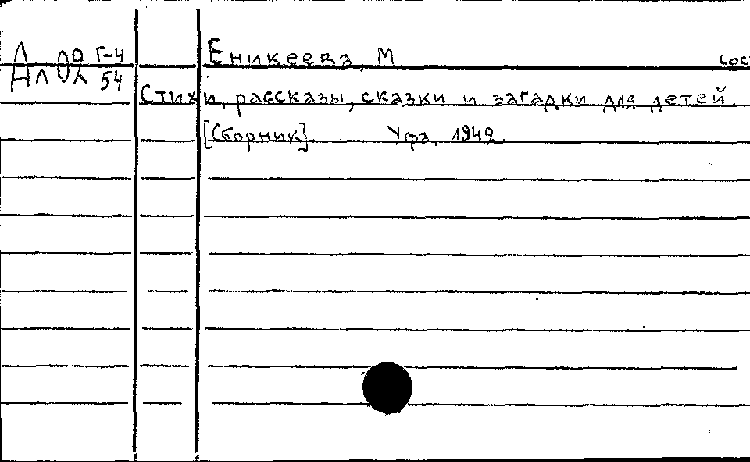 Г-4 Еникеева, М сост
54
Стихи, рассказы, сказки и загадки для детей
[Сборник]. Уфа, 1949